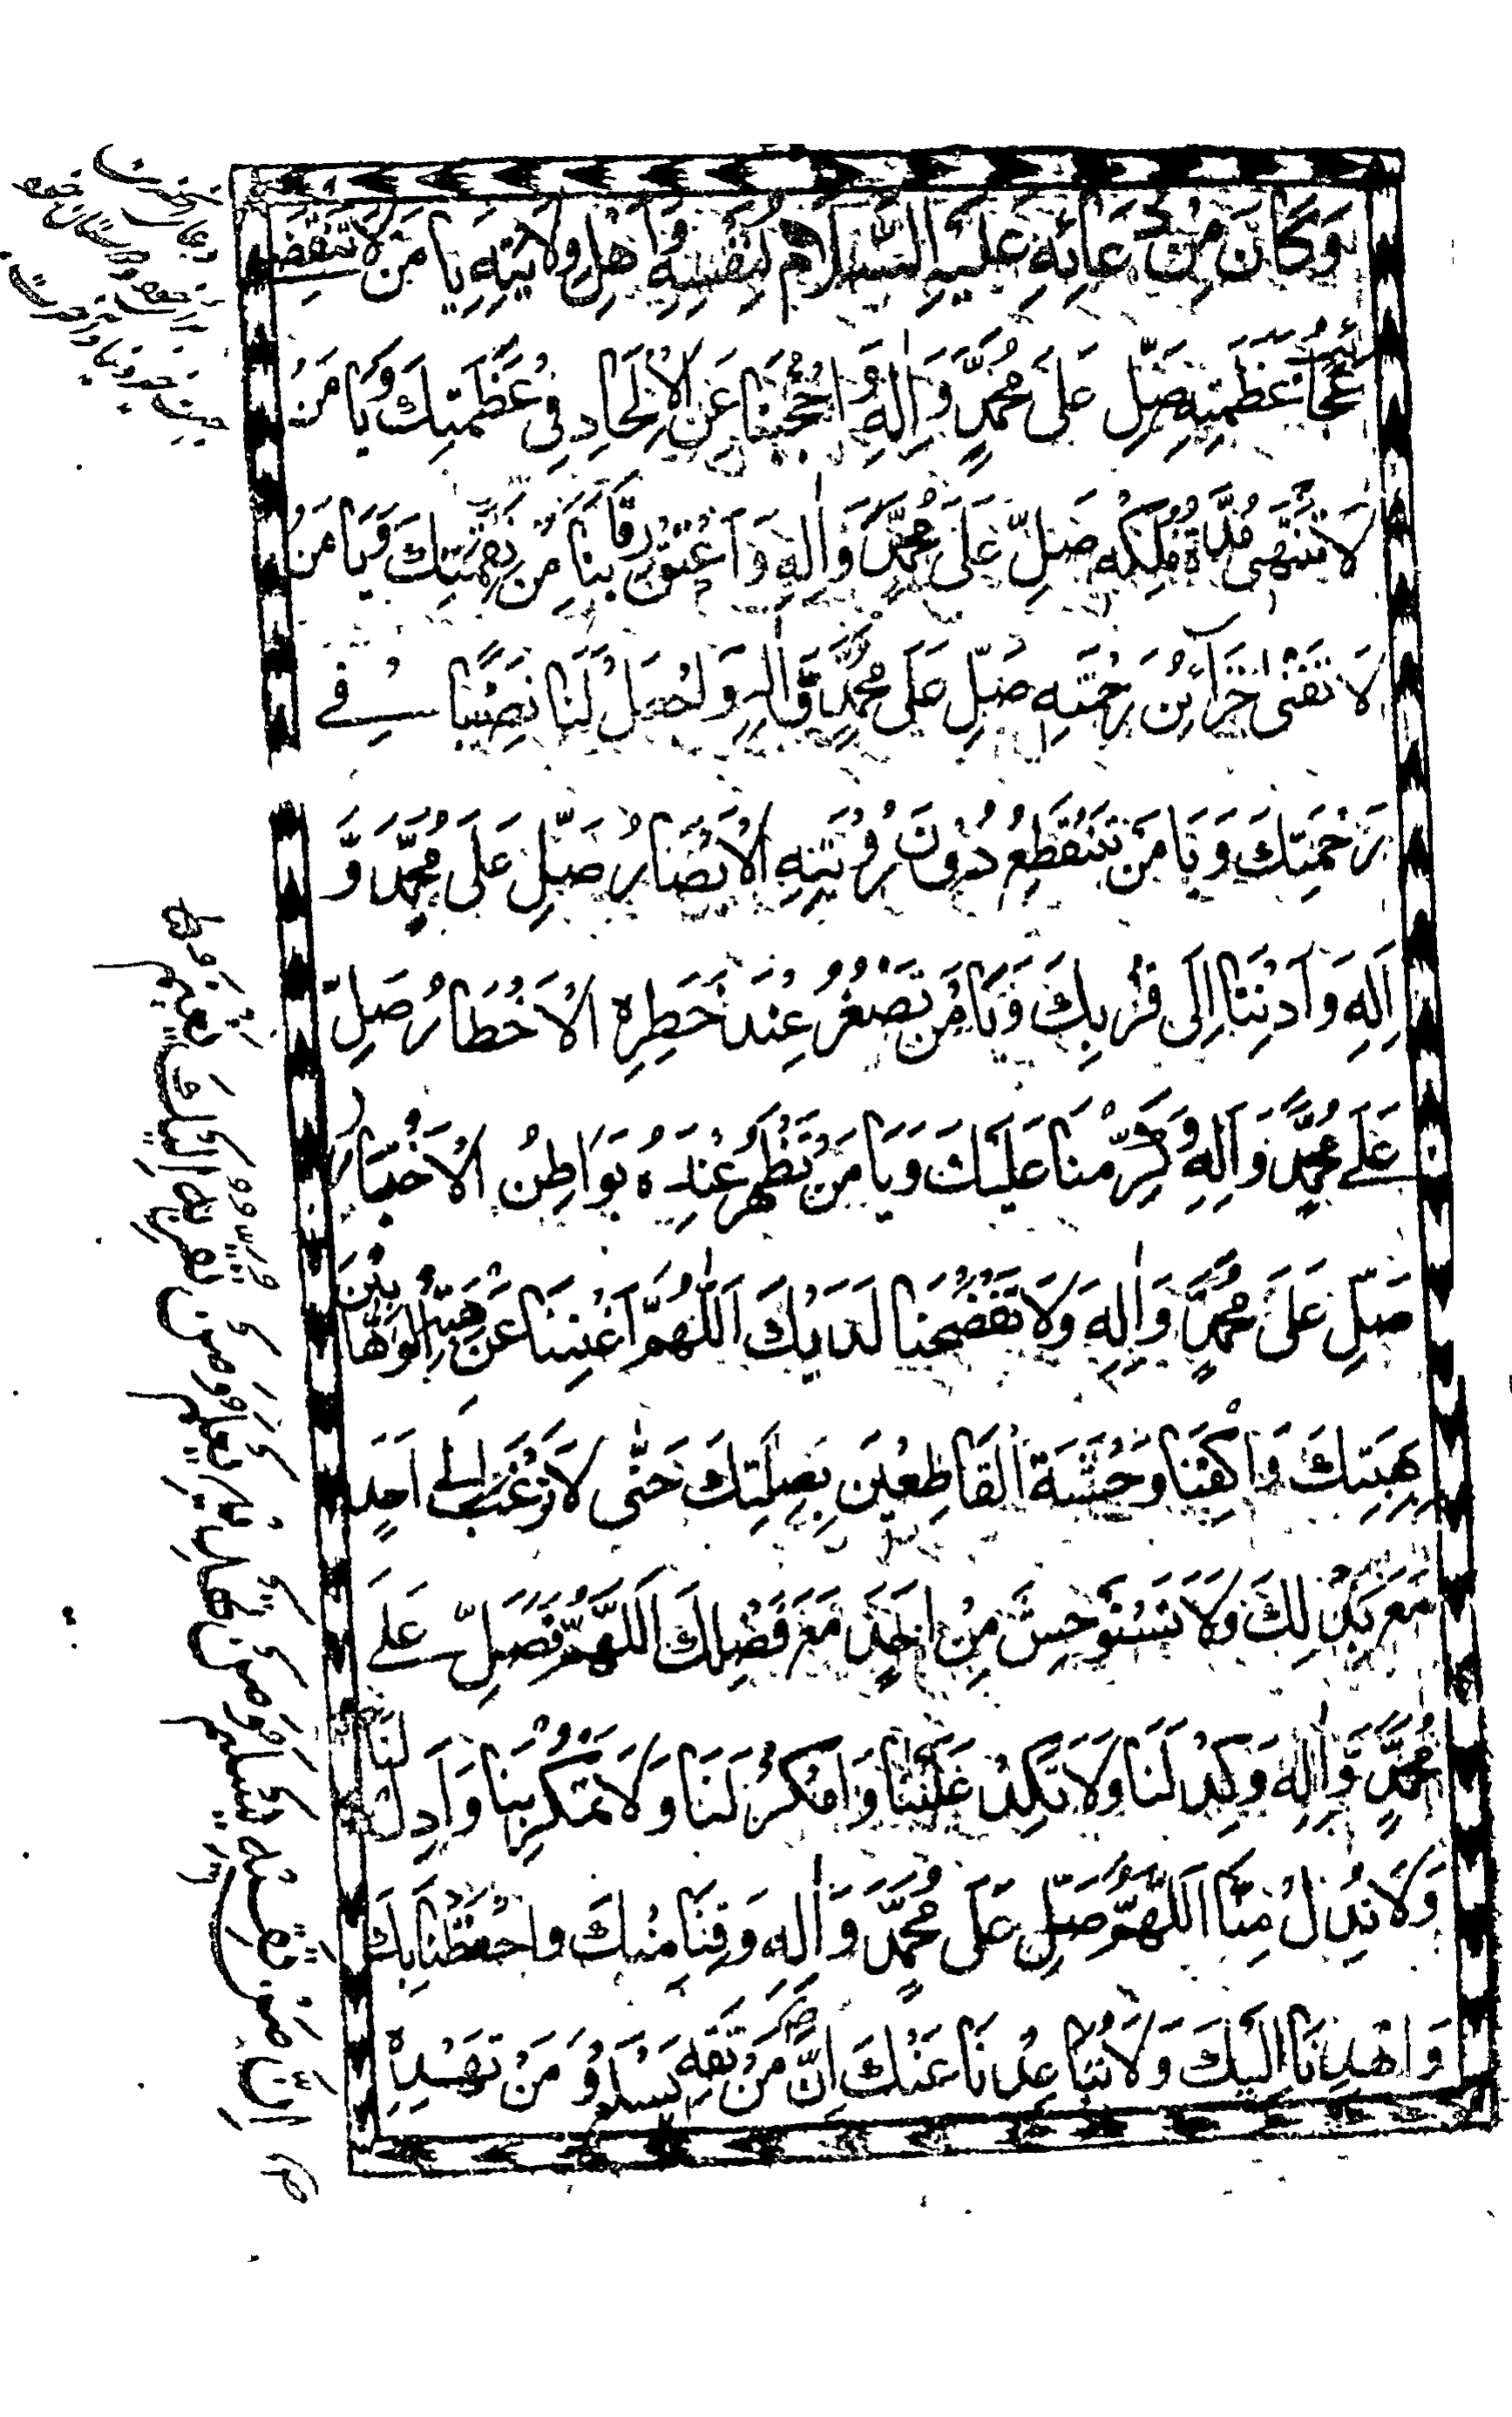 وَكَانَ مِنْ دُعَائِهِ عَلَيْهِ السَّلَامُ لِنَفْسِهِ وَاَهْلِ وِلَايَتِهِ يَا مَنْ لَا تَنْقَضِي
عَجَائِبُ عَظَمَتِهِ صَلِّ عَلَى مُحَمَّدٍ وَاٰلِهِ وَاحْجُبْنَا عَنِ الْاِلْحَادِ فِي عَظَمَتِكَ وَيَا مَنْ
لَا تَنْتَهِي مُدَّةُ مُلْكِهِ صَلِّ عَلَى مُحَمَّدٍ وَاٰلِهِ وَاَعْتِقْ رِقَابَنَا مِنْ نِقْمَتِكَ وَيَا مَنْ
لَا تَفْنٰى خَزَائِنُ رَحْمَتِهِ صَلِّ عَلَى مُحَمَّدٍ وَّاٰلِهِ وَاجْعَلْ لَنَا نَصِيْبًا فِي
رَحْمَتِكَ وَيَا مَنْ تَنْقَطِعُ دُوْنَ رُؤْيَتِهِ الْاَبْصَارُ صَلِّ عَلَى مُحَمَّدٍ وَّ
اٰلِهِ وَاَدْنِنَا اِلَى قُرْبِكَ وَيَا مَنْ تَصْغُرُ عِنْدَ خَطَرِهِ الْاَخْطَارُ صَلِّ
عَلَى مُحَمَّدٍ وَاٰلِهِ وَكَرِّمْنَا عَلَيْكَ وَيَا مَنْ تَظْهَرُ عِنْدَهُ بَوَاطِنُ الْاَخْبَارِ
صَلِّ عَلَى مُحَمَّدٍ وَاٰلِهِ وَلَا تَفْضَحْنَا لَدَيْكَ اَللّٰهُمَّ اَغْنِنَا عَنْ هِبَةِ الْوَهَّابِيْنَ
بِهِبَتِكَ وَاكْفِنَا وَحْشَةَ الْقَاطِعِيْنَ بِصِلَتِكَ حَتّٰى لَا نَرْغَبَ اِلَى اَحَدٍ
مَعَ بَذْلِكَ وَلَا نَسْتَوْحِشَ مِنْ اَحَدٍ مَعَ فَضْلِكَ اَللّٰهُمَّ فَصَلِّ عَلَى
مُحَمَّدٍ وَّاٰلِهِ وَكِدْ لَنَا وَلَا تَكِدْ عَلَيْنَا وَامْكُرْ لَنَا وَلَا تَمْكُرْ بِنَا وَاَدِلْ لَنَا
وَلَا تُدِلْ مِنَّا اَللّٰهُمَّ صَلِّ عَلَى مُحَمَّدٍ وَّاٰلِهِ وَقِنَا مِنْكَ وَاحْفَظْنَا بِكَ
وَاهْدِنَا اِلَيْكَ وَلَا تُبَاعِدْنَا عَنْكَ اِنَّ مَنْ تَقِهِ يَسْلَمْ وَمَنْ تَهْدِهِ